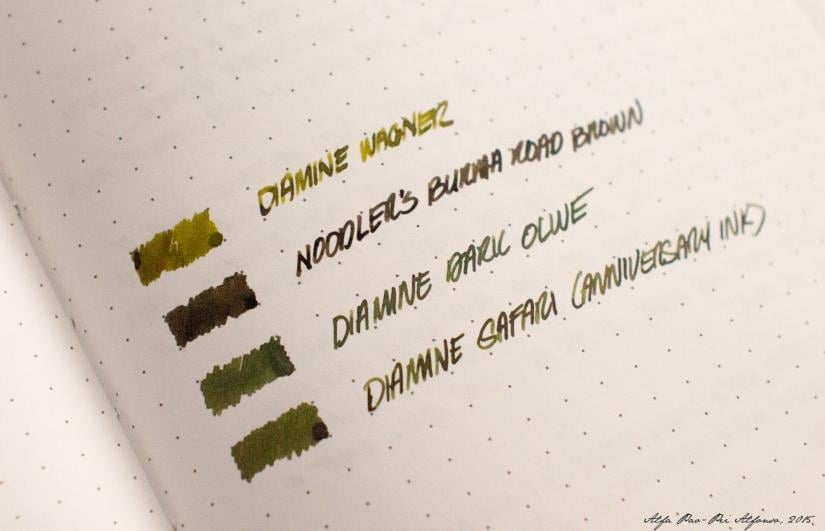 DIAMINE WAGNER
NOODLER'S BURMA ROAD BROWN
DIAMINE DARK OLIVE
DIAMINE SAFARI (ANNIVERSARY INK)
Alfa Pao-Pei Alfonso, 2015.